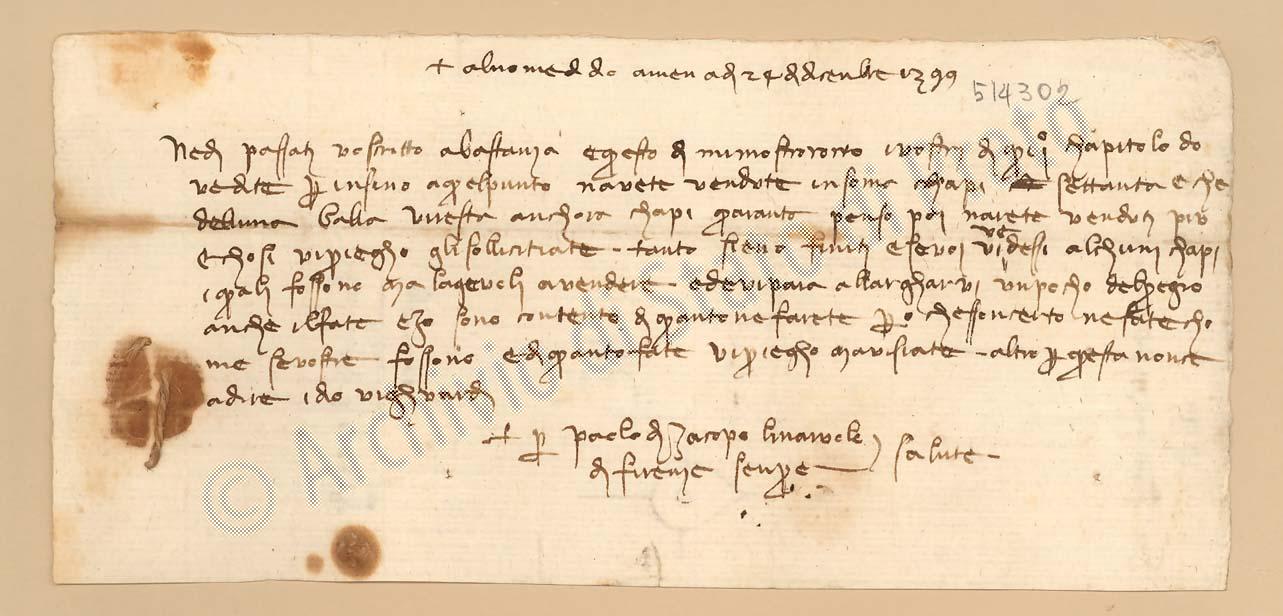 + al nome di dio amen a dì 24 di dicenbre 1399
514302
Nedì passati v'o scritto a bastanza e questo di mi mostrorono i vostri di chapitolo do
vedete per insino a quel punto n'avete vendute in soma chapi settanta e che
del una balla vi resta anchora chapi quaranta penso poi n'arete venduti più
e chosì vi priegho gli sollicitiate tanto sieno finiti e se voi vedesi alchuni chapi
i quali fossono malagevoli a vendere ed e' vi paia allargharvi un pocho del pregio
anche il fate e io sono contento di quanto ne farete però che son certo ne fate cho
me se vostre fossono e di quanto fate vi priegho m'avisiate altro per questa non c'è
a dire idio vi ghuardi
+ per paolo di Jacopo linaiuole salute
di firenze senpre
© Archivio di Stato di Prato